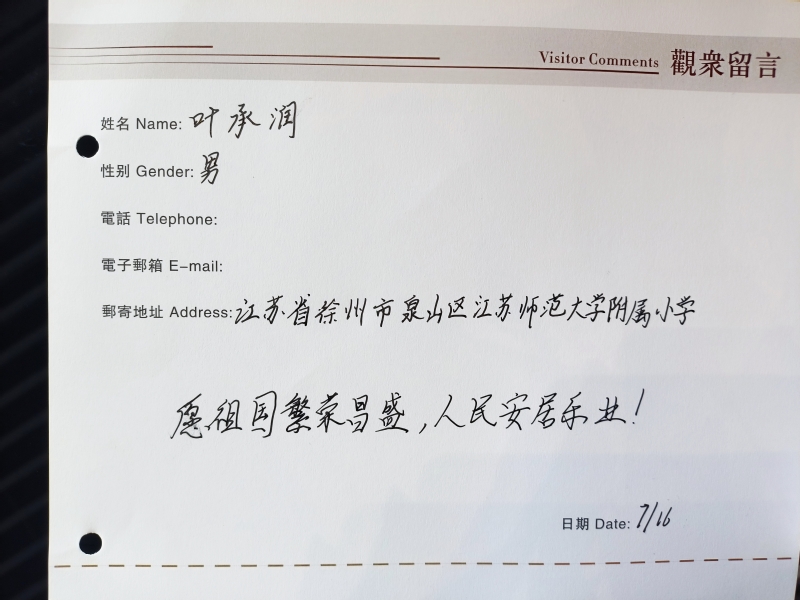 Visitor Comments 觀衆留言
姓名 Name: 叶承润
性别 Gender: 男
電話 Telephone:
電子郵箱 E-mail:
郵寄地址 Address: 江苏省徐州市泉山区江苏师范大学附属小学
愿祖国繁荣昌盛,人民安居乐业!
日期 Date: 7/16